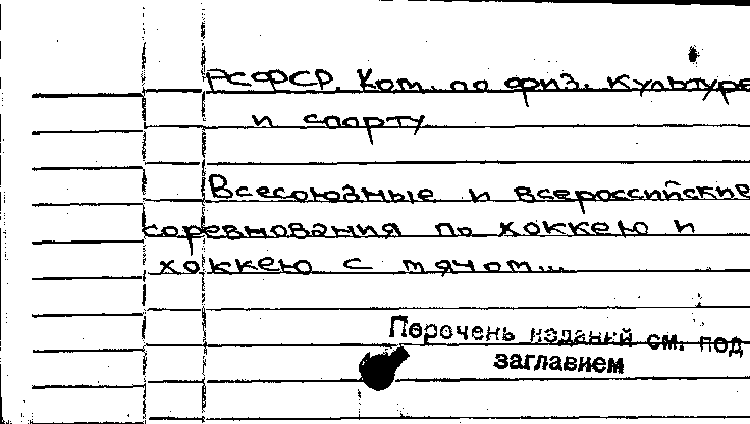 РСФСР. Ком. по физ. культуре
и спорту
Всесоюзные и всероссийские
соревнования по хоккею и
хоккею с мячом...
Перечень изданий см. под
заглавием